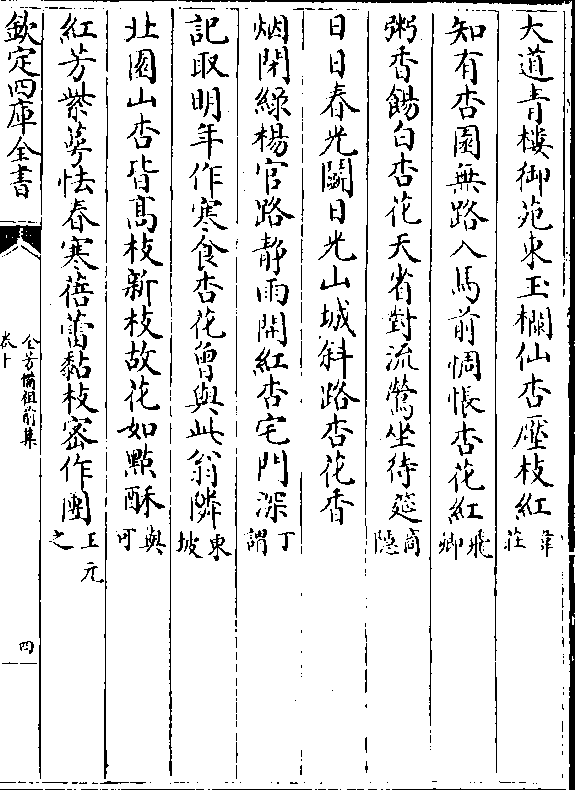 大道青樓御苑東玉欄仙杏壓枝紅韋莊
知有杏園無路入馬前惆悵杏花紅飛卿
粥香餳白杏花天省對流鶯坐待筵商隱
日日春光鬬日光山城斜路杏花香
烟閉綠楊官路静雨開紅杏宅門深丁謂
記取明年作寒食杏花曾與此翁隣東坡
北園山杏皆髙枝新枝故花如點酥與可
紅芳紫萼怯春寒蓓蕾黏枝密作團王元之
欽定四庫全書
全芳備祖前集
卷十
四